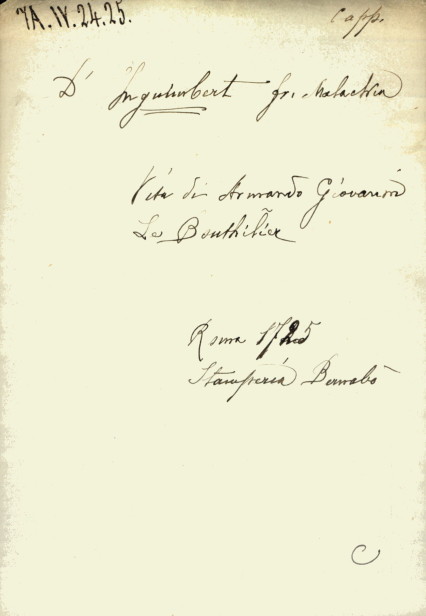 7A.IV.24.25.
Capp.
D' Inguimbert fr. Malachia
Vita di Armando Giovanni
Le Bouthilier
Roma 1725
Stamperia Bernabò
C